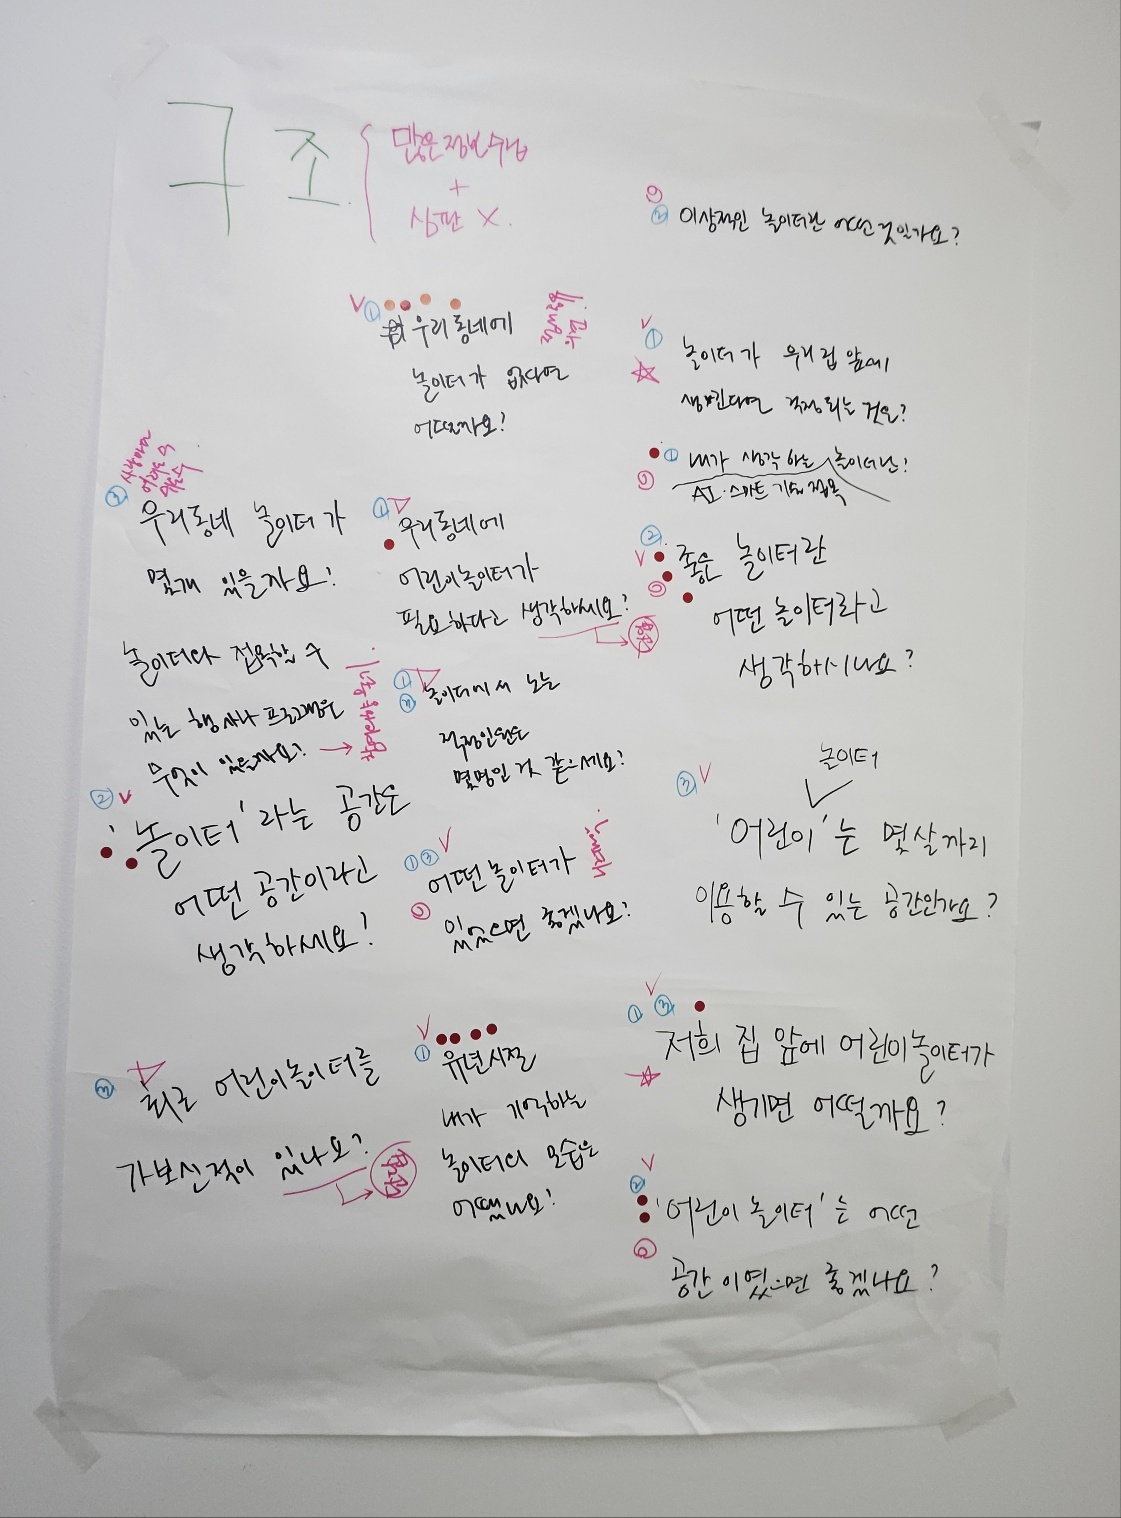 구조
많은정보수집
+
심판 X.
② 이상적인 놀이터란 어떤것일까요?
① 우리동네에
놀이터가 없다면
어떨까요?
① 놀이터가 우리집앞에
생긴다면 걱정되는 것은?
① 내가 생각하는 놀이터란?
AI·스마트 기술 접목
③ 우리동네 놀이터가
몇개 있을까요?
① 우리동네에
어린이놀이터가
필요하다고 생각하세요?
② 좋은 놀이터란
어떤 놀이터라고
생각하시나요?
놀이터와 접목할 수
있는 행사나 프로그램은
무엇이 있을까요?
① 놀이터에서 노는
적정인원은
몇명인 것 같으세요?
② '놀이터'라는 공간은
어떤 공간이라고
생각하세요?
①③ 어떤 놀이터가
있었으면 좋겠나요?
놀이터
③ '어린이'는 몇살까지
이용할 수 있는 공간인가요?
최근 어린이놀이터를
가보신적이 있나요?
① 유년시절
내가 기억하는
놀이터의 모습은
어땠나요?
①③ 저희 집 앞에 어린이놀이터가
생기면 어떨까요?
② '어린이 놀이터'는 어떤
공간이였으면 좋겠나요?